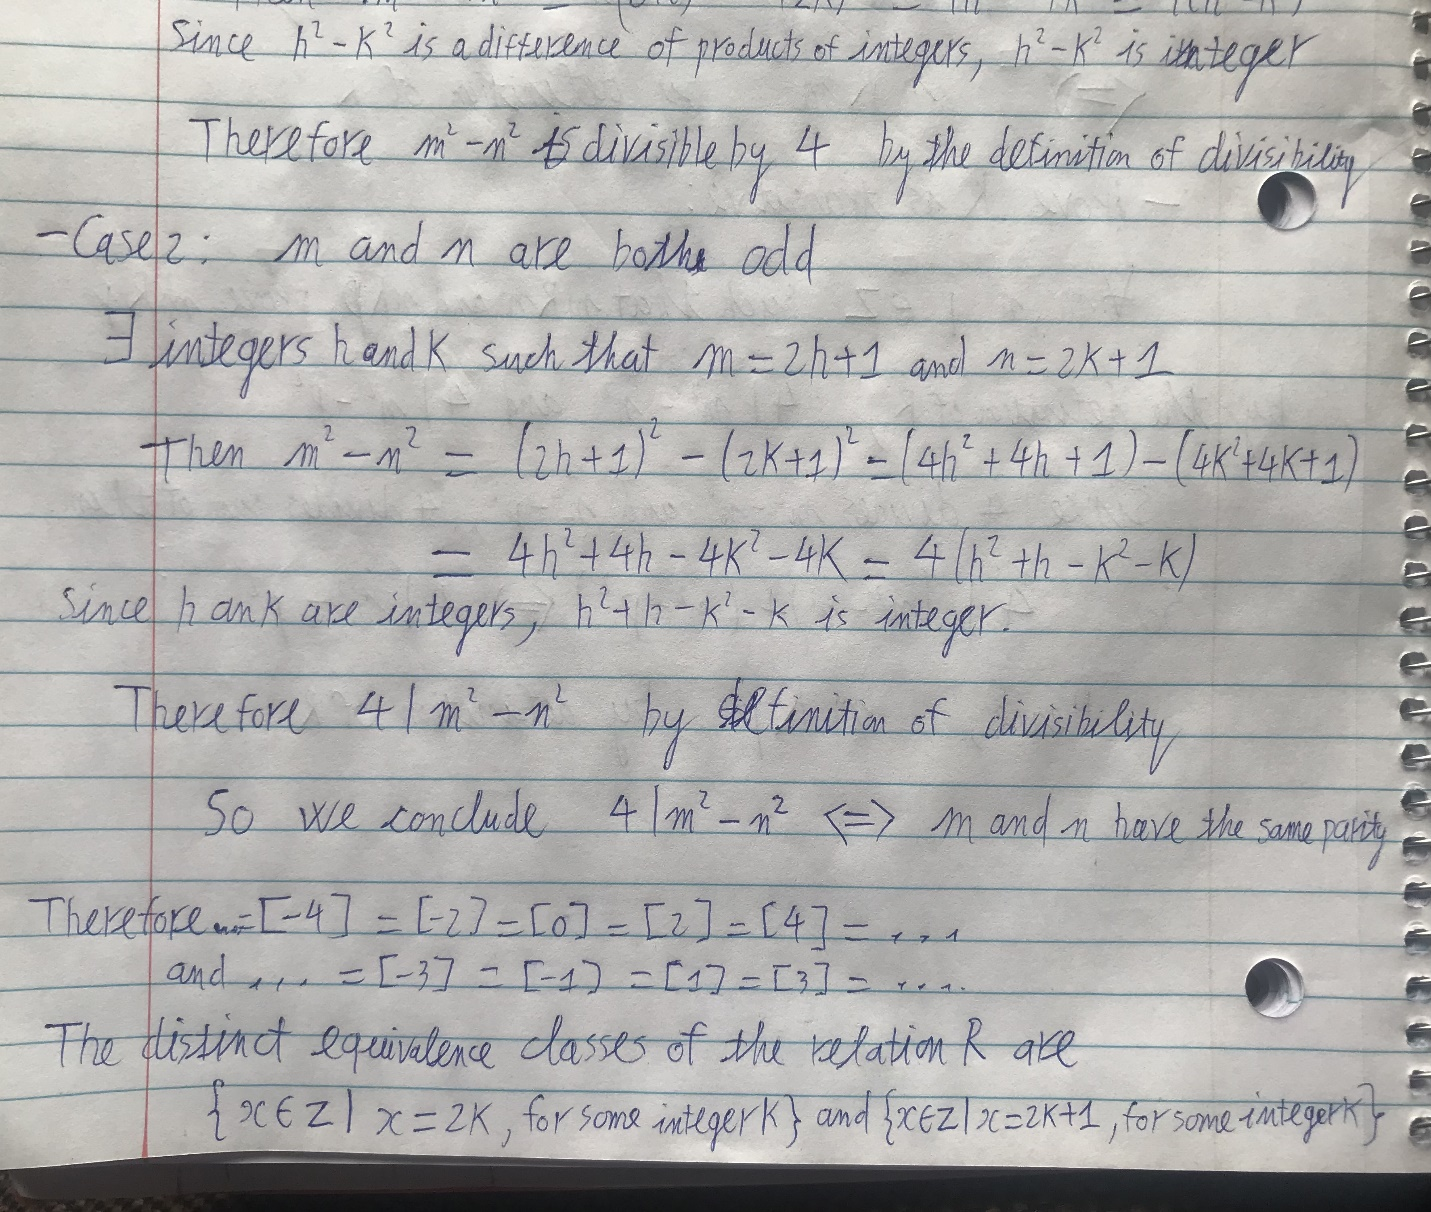 Since h² - k² is a difference of products of integers, h² - k² is integer
Therefore m² - n² is divisible by 4 by the definition of divisibility
- Case 2: m and n are both odd
∃ integers h and k such that m = 2h+1 and n = 2k+1
Then m² - n² = (2h+1)² - (2k+1)² = (4h² + 4h + 1) - (4k² + 4k + 1)
= 4h² + 4h - 4k² - 4k = 4(h² + h - k² - k)
Since h an k are integers, h² + h - k² - k is integer.
Therefore 4 | m² - n² by definition of divisibility
So we conclude 4 | m² - n² <=> m and n have the same parity
Therefore ... = [-4] = [-2] = [0] = [2] = [4] = ...
and ... = [-3] = [-1] = [1] = [3] = ....
The distinct equivalence classes of the relation R are
{x ∈ Z | x = 2k, for some integer k} and {x ∈ Z | x = 2k+1, for some integer k}